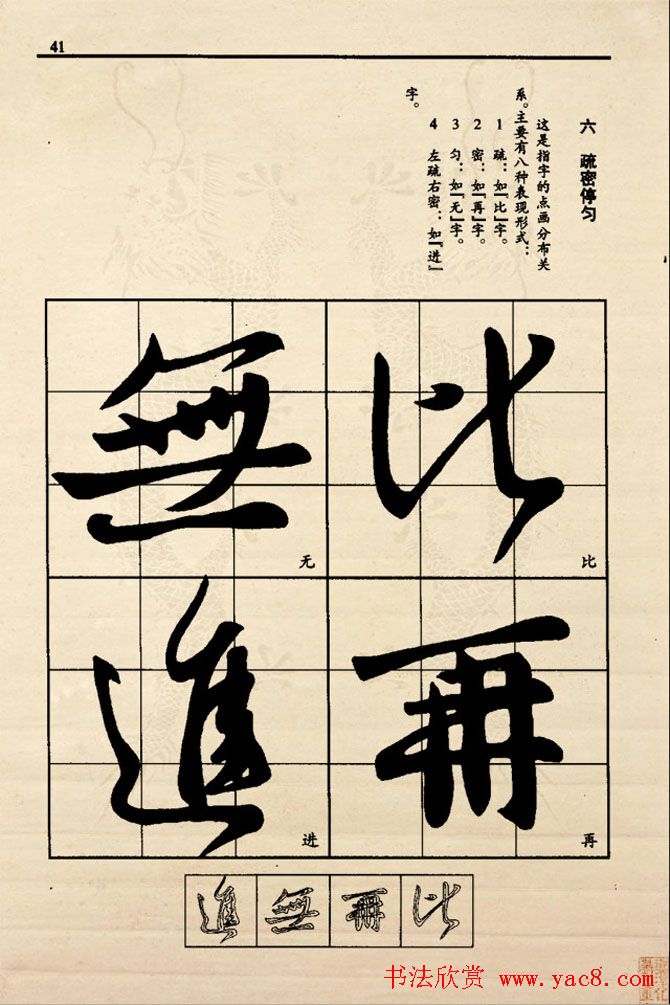 41
六　疏密停匀
这是指字的点画分布关
系。主要有八种表现形式：
1　疏：如『比』字。
2　密：如『再』字。
3　匀：如『无』字。
4　左疏右密：如『进』
字。
比
比
再
再
無
无
進
进
比
再
無
進
书法欣赏 www.yac8.com